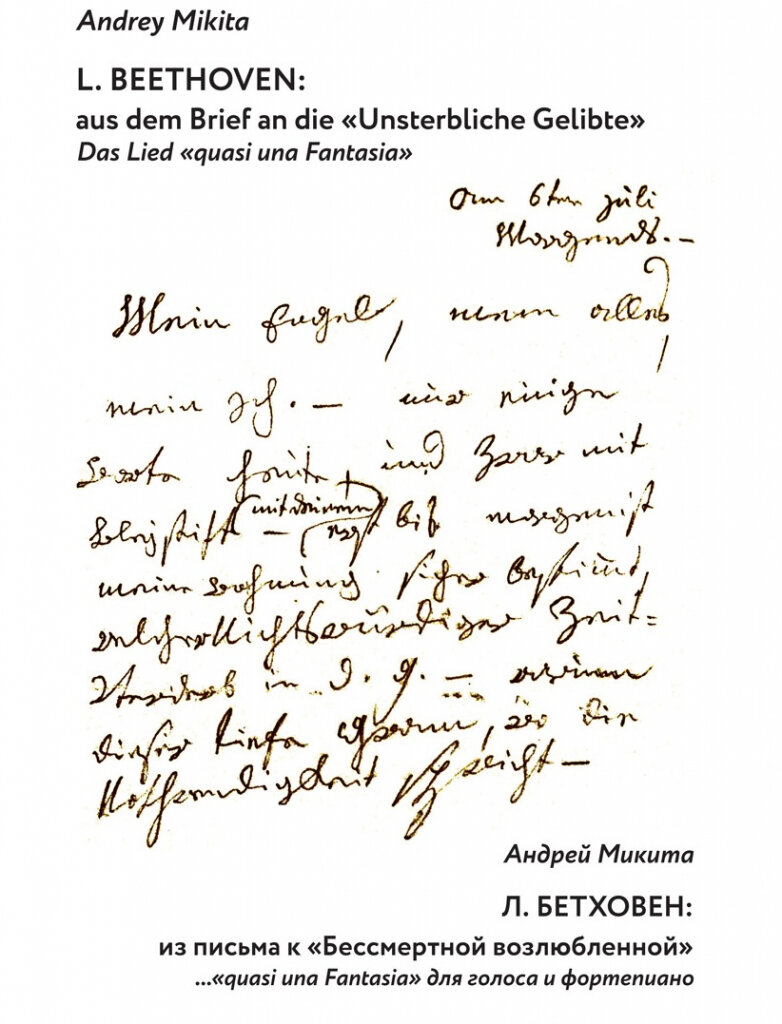 Andrey Mikita
L. BEETHOVEN:
aus dem Brief an die «Unsterbliche Gelibte»
Das Lied «quasi una Fantasia»
am 6ten juli
Morgends. –
Mein Engel, mein alles,
mein Ich. – nur einige
Worte heute, und zwar mit
Bleystift – (mit deinem)
erst bis morgen ist
meine wohnung sicher bestimt,
welcher Nichtswürdiger Zeit=
Verderb in d. g. – warum
dieser tiefe gram, wo die
Nothwendigkeit spricht –
Андрей Микита
Л. БЕТХОВЕН:
из письма к «Бессмертной возлюбленной»
...«quasi una Fantasia» для голоса и фортепиано